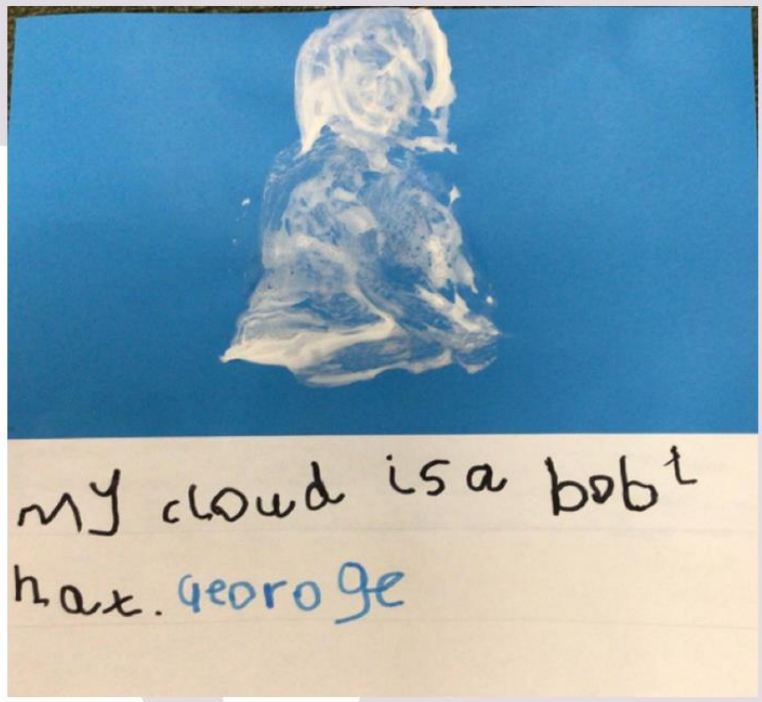 my cloud is a bobt
hat. Georoge